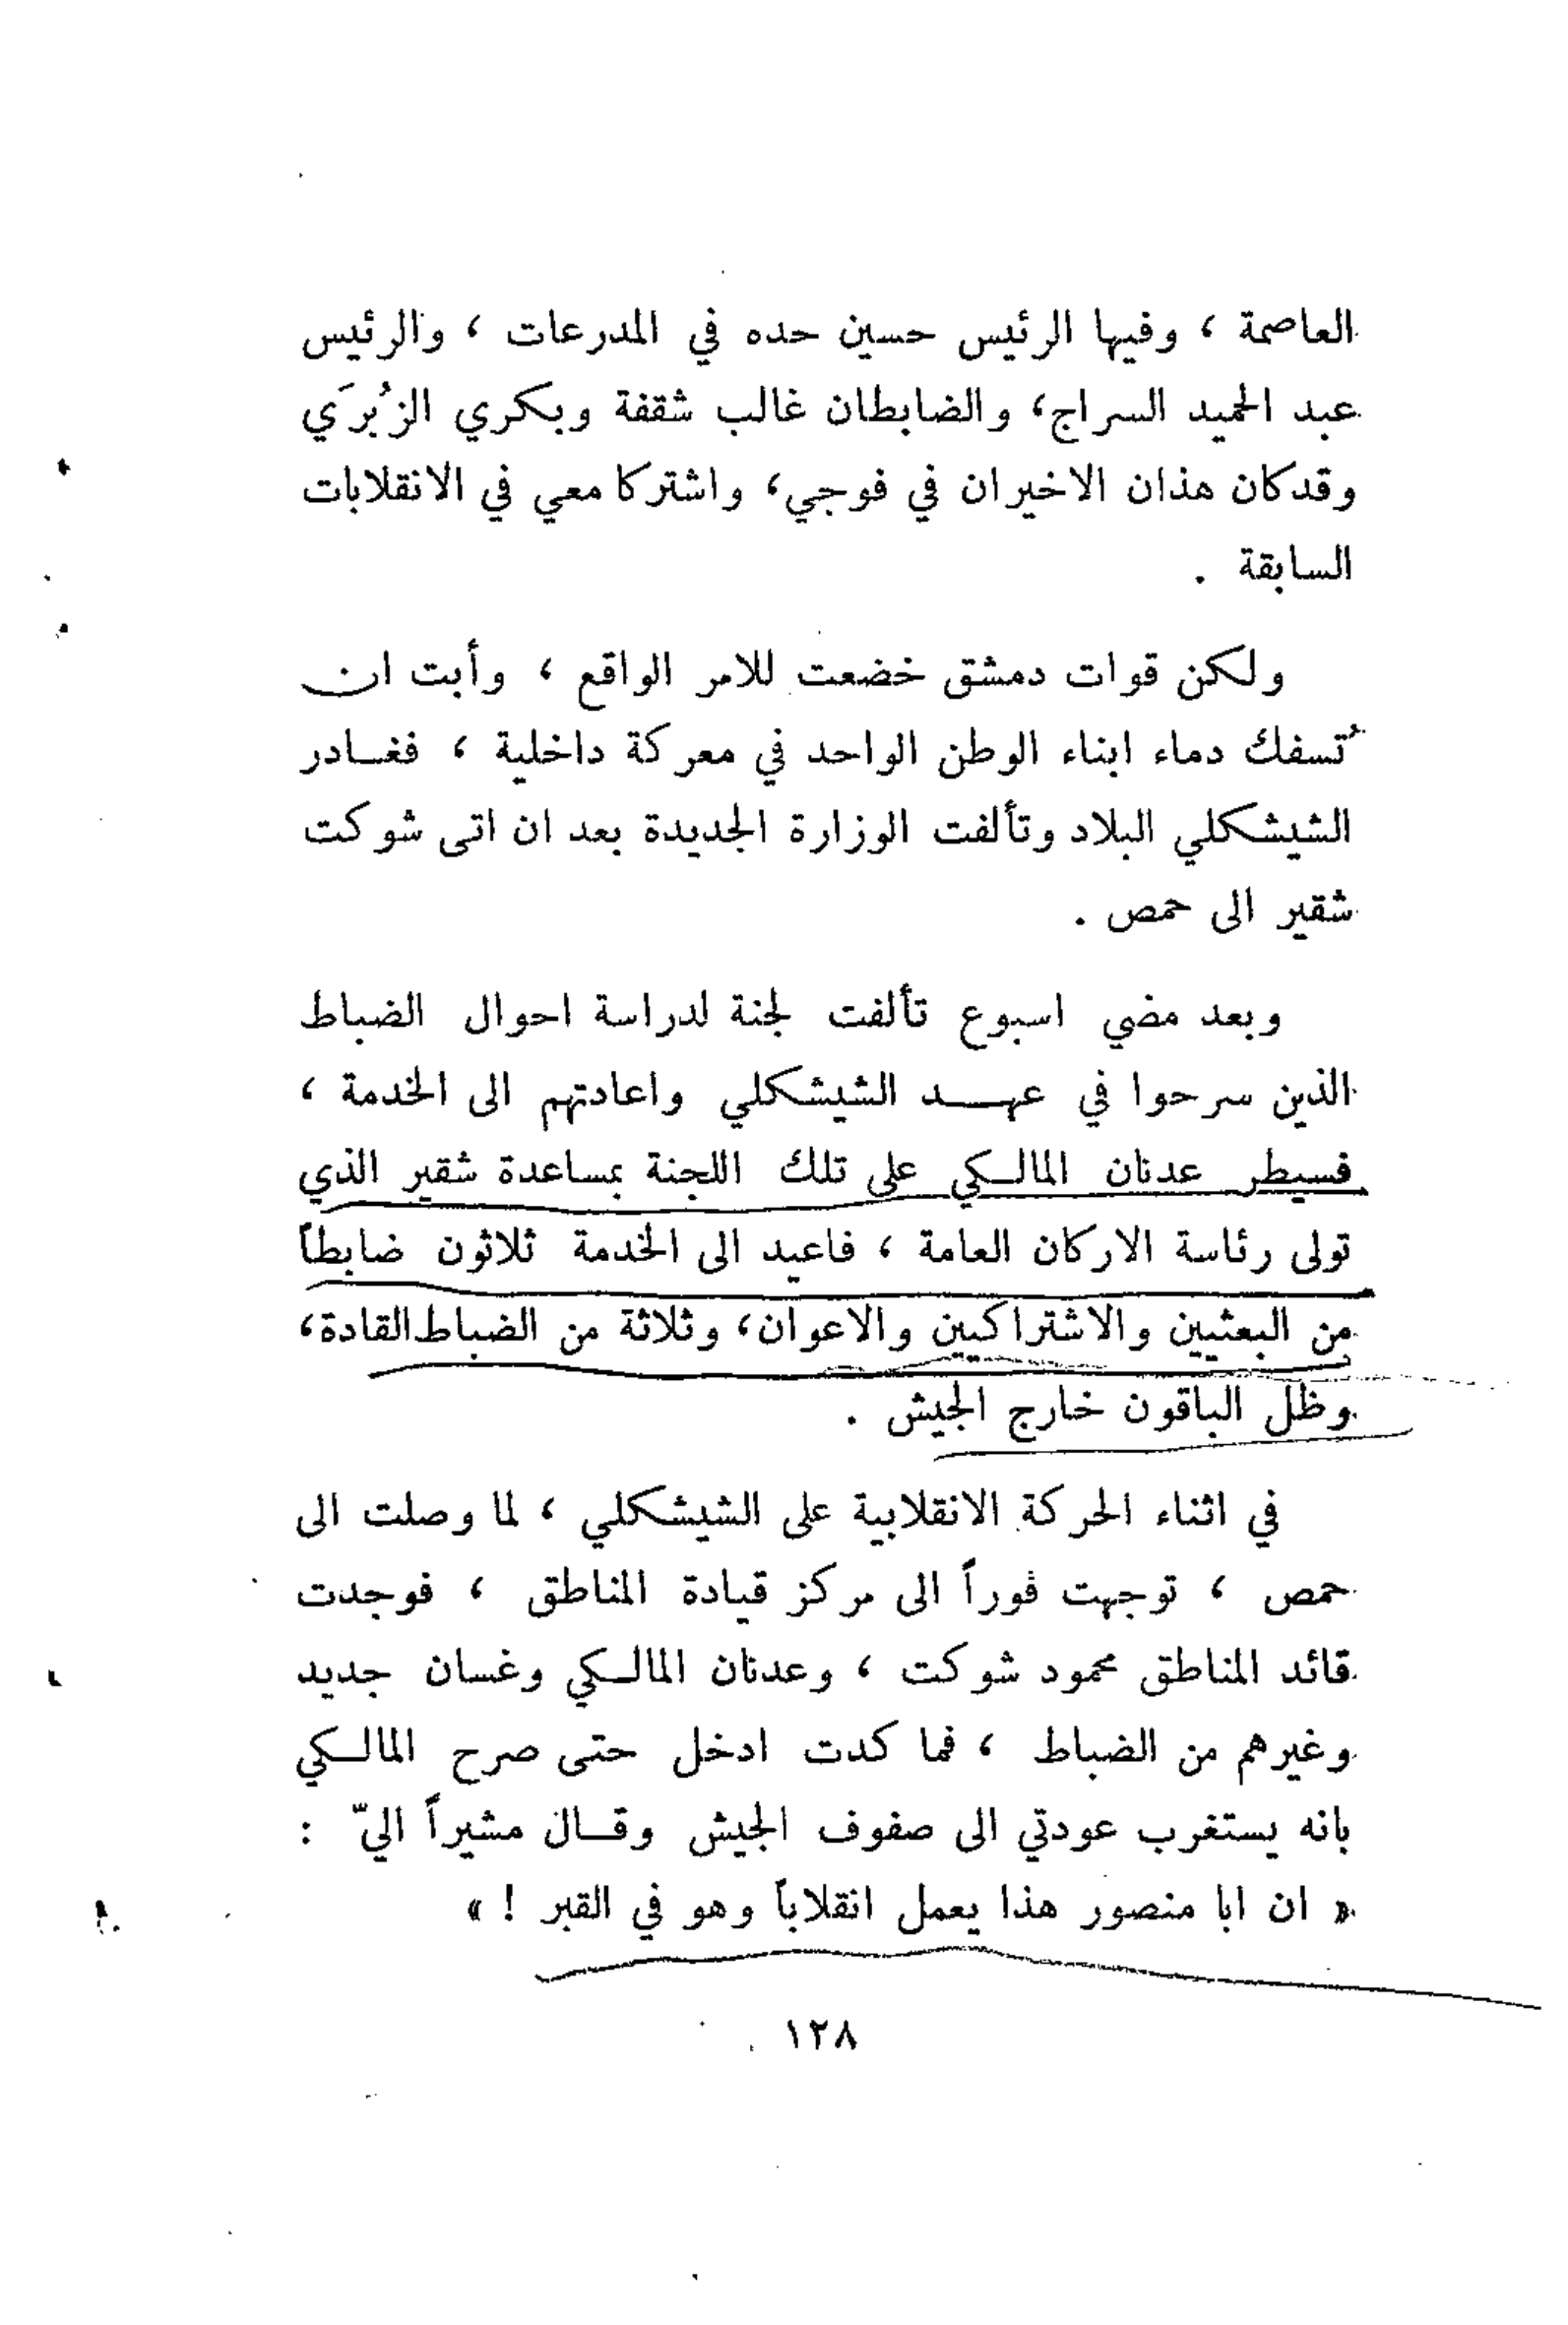 العاصمة ، وفيها الرئيس حسين حده في المدرعات ، والرئيس
عبد الحميد السراج، والضابطان غالب شقفة وبكري الزُبرَي
وقد كان هذان الاخيران في فوجي، واشتركا معي في الانقلابات
السابقة .
ولكن قوات دمشق خضعت للامر الواقع ، وأبت ان
تُسفك دماء ابناء الوطن الواحد في معركة داخلية ، فغـادر
الشيشكلي البلاد وتألفت الوزارة الجديدة بعد ان اتى شوكت
شقير الى حمص .
وبعد مضي اسبوع تألفت لجنة لدراسة احوال الضباط
الذين سرحوا في عهـــد الشيشكلي واعادتهم الى الخدمة ،
فسيطر عدنان المالـكي على تلك اللجنة بمساعدة شقير الذي
تولى رئاسة الاركان العامة ، فاعيد الى الخدمة ثلاثون ضابطاً
من البعثيين والاشتراكيين والاعوان، وثلاثة من الضباط القادة،
وظل الباقون خارج الجيش .
في اثناء الحركة الانقلابية على الشيشكلي ، لما وصلت الى
حمص ، توجهت فوراً الى مركز قيادة المناطق ، فوجدت
قائد المناطق محمود شوكت ، وعدنان المالـكي وغسان جديد
وغيرهم من الضباط ، فما كدت ادخل حتى صرح المالـكي
بانه يستغرب عودتي الى صفوف الجيش وقـال مشيراً اليّ :
« ان ابا منصور هذا يعمل انقلاباً وهو في القبر ! »
١٢٨